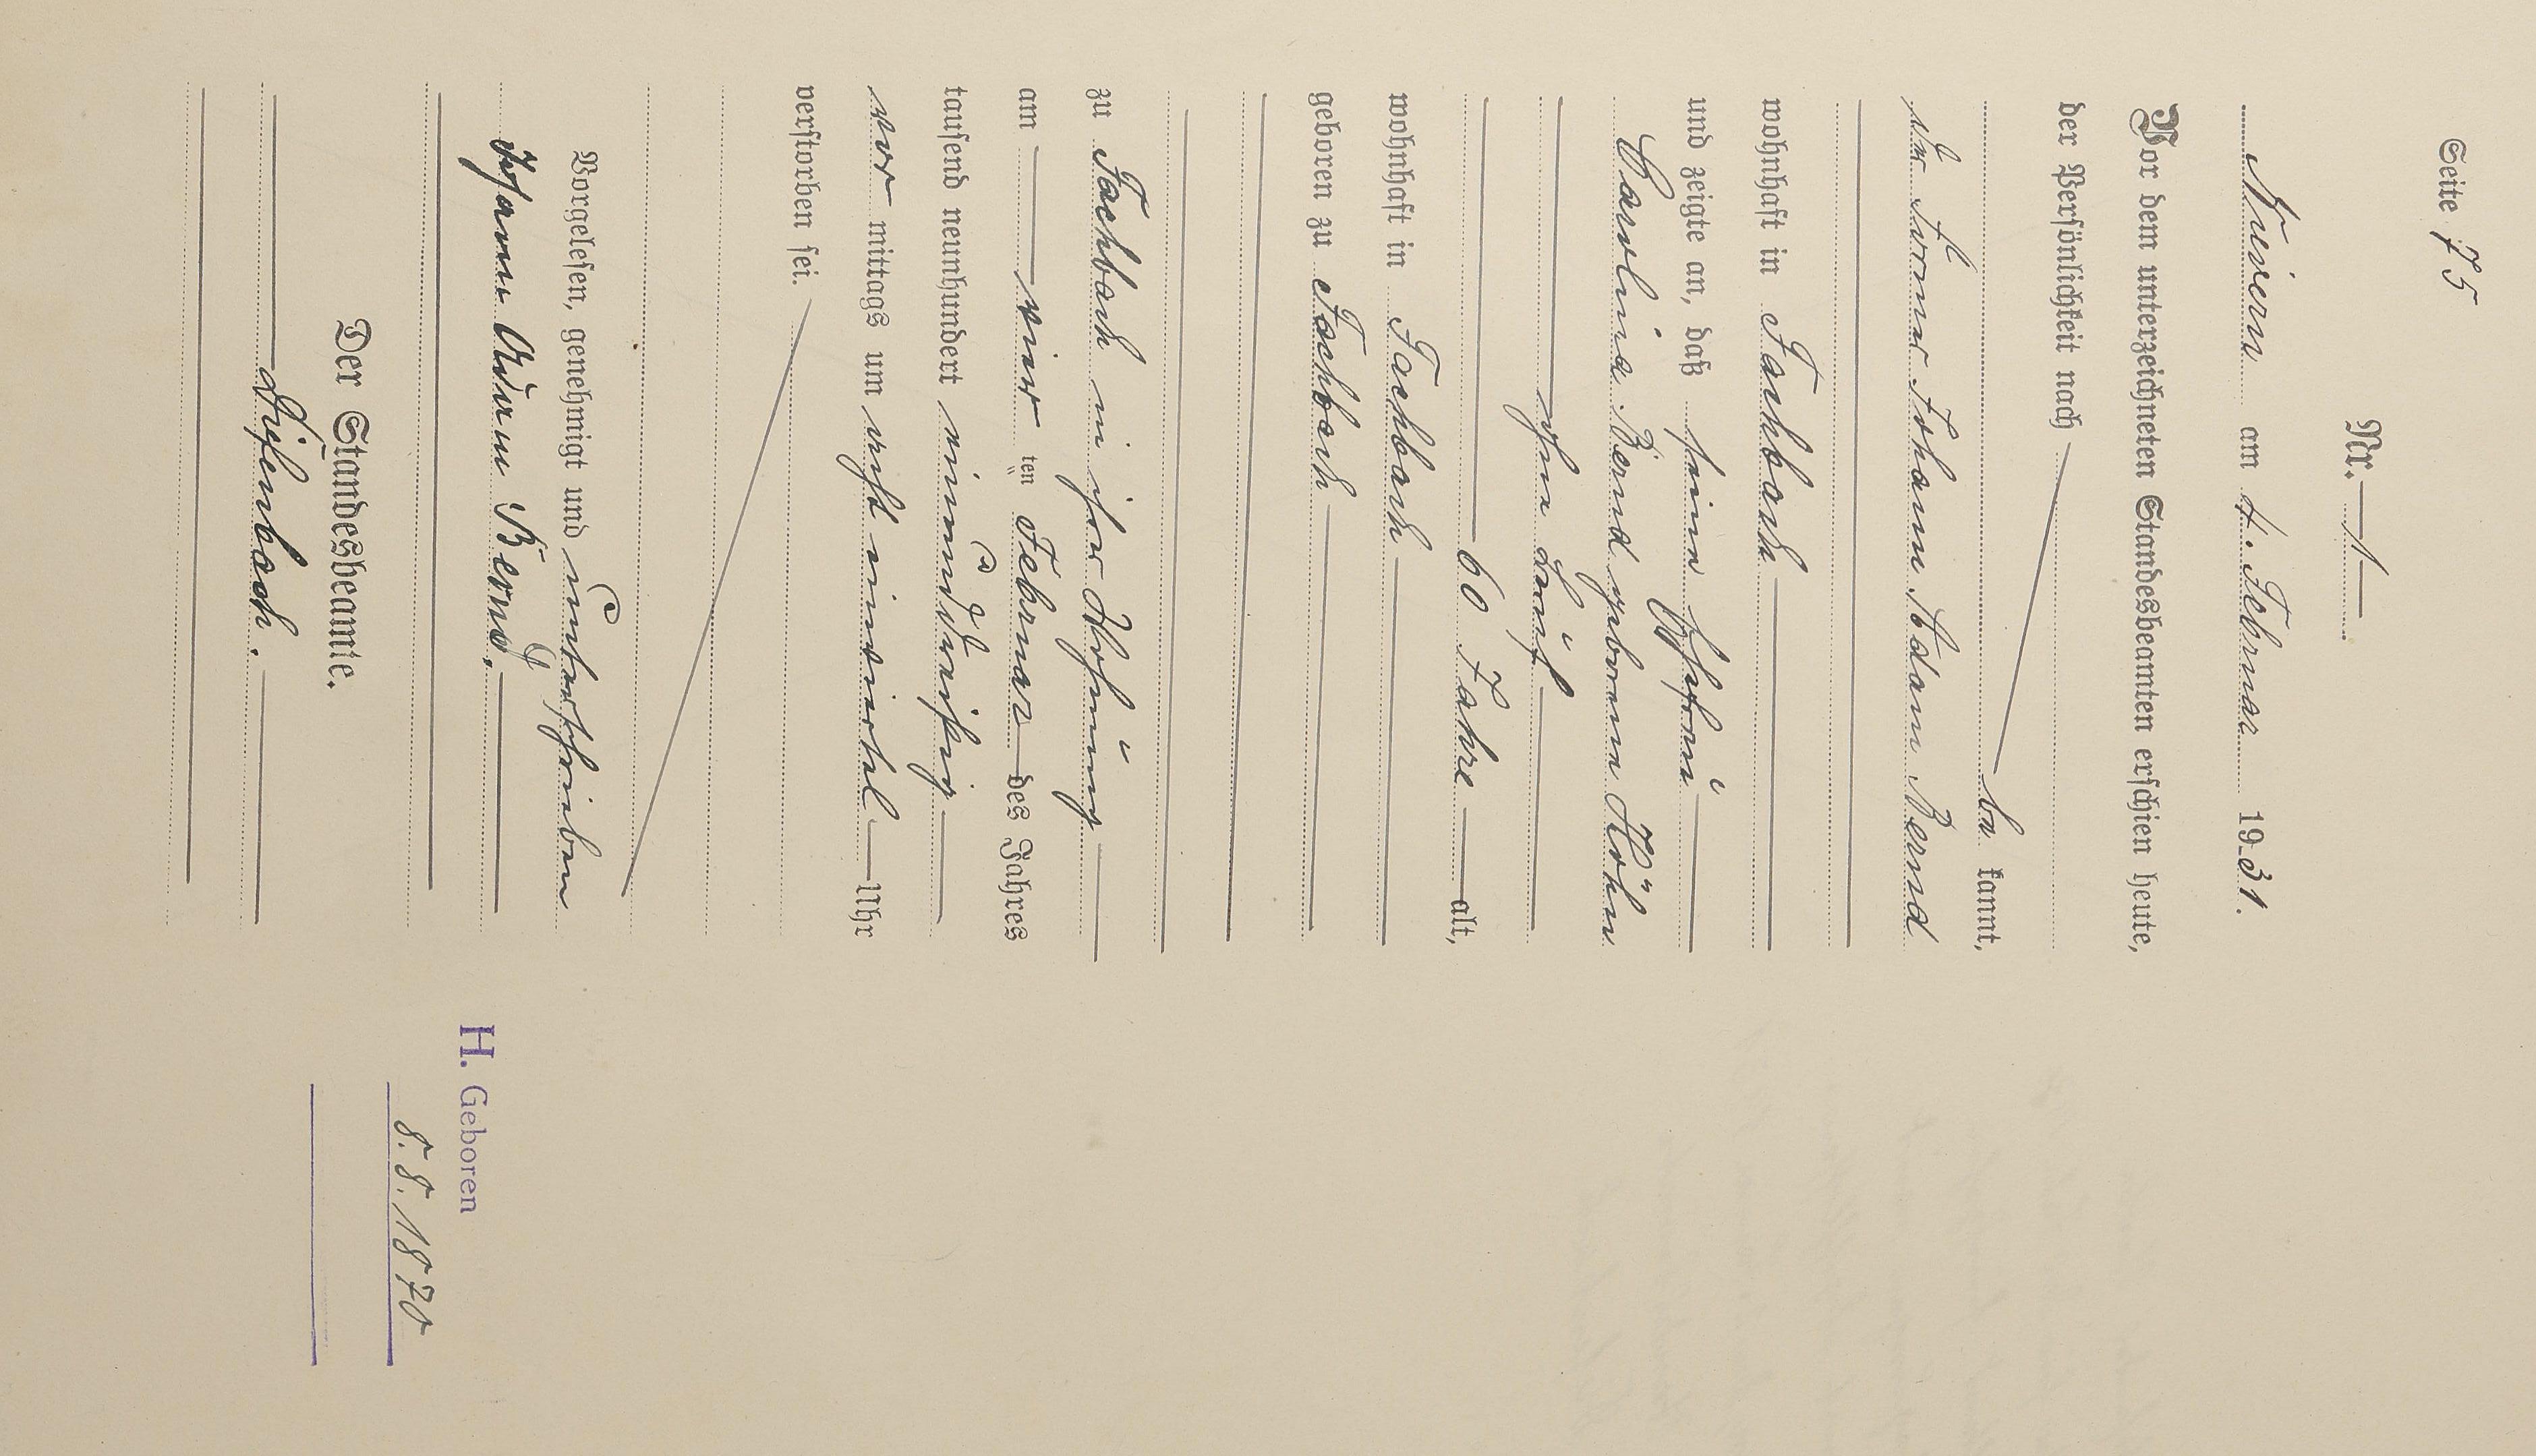 Seite 75
Nr. 1
Nievern am 4. Februar 1931.
Vor dem unterzeichneten Standesbeamten erschien heute,
der Persönlichkeit nach
be kannt,
der Former Johann Adam Bernd
wohnhaft in Fachbach
und zeigte an, daß seine Ehefrau
Caroline Bernd geborene Höhn
60 Jahre alt,
wohnhaft in Fachbach
geboren zu Fachbach
zu Fachbach in ihrer Wohnung
am vier ten Februar des Jahres
tausend neunhundert einunddreißig
vor mittags um acht einviertel Uhr
verstorben sei.
Vorgelesen, genehmigt und unterschrieben
Johann Adam Bernd.
Der Standesbeamte.
H. Geboren
8.8.1870